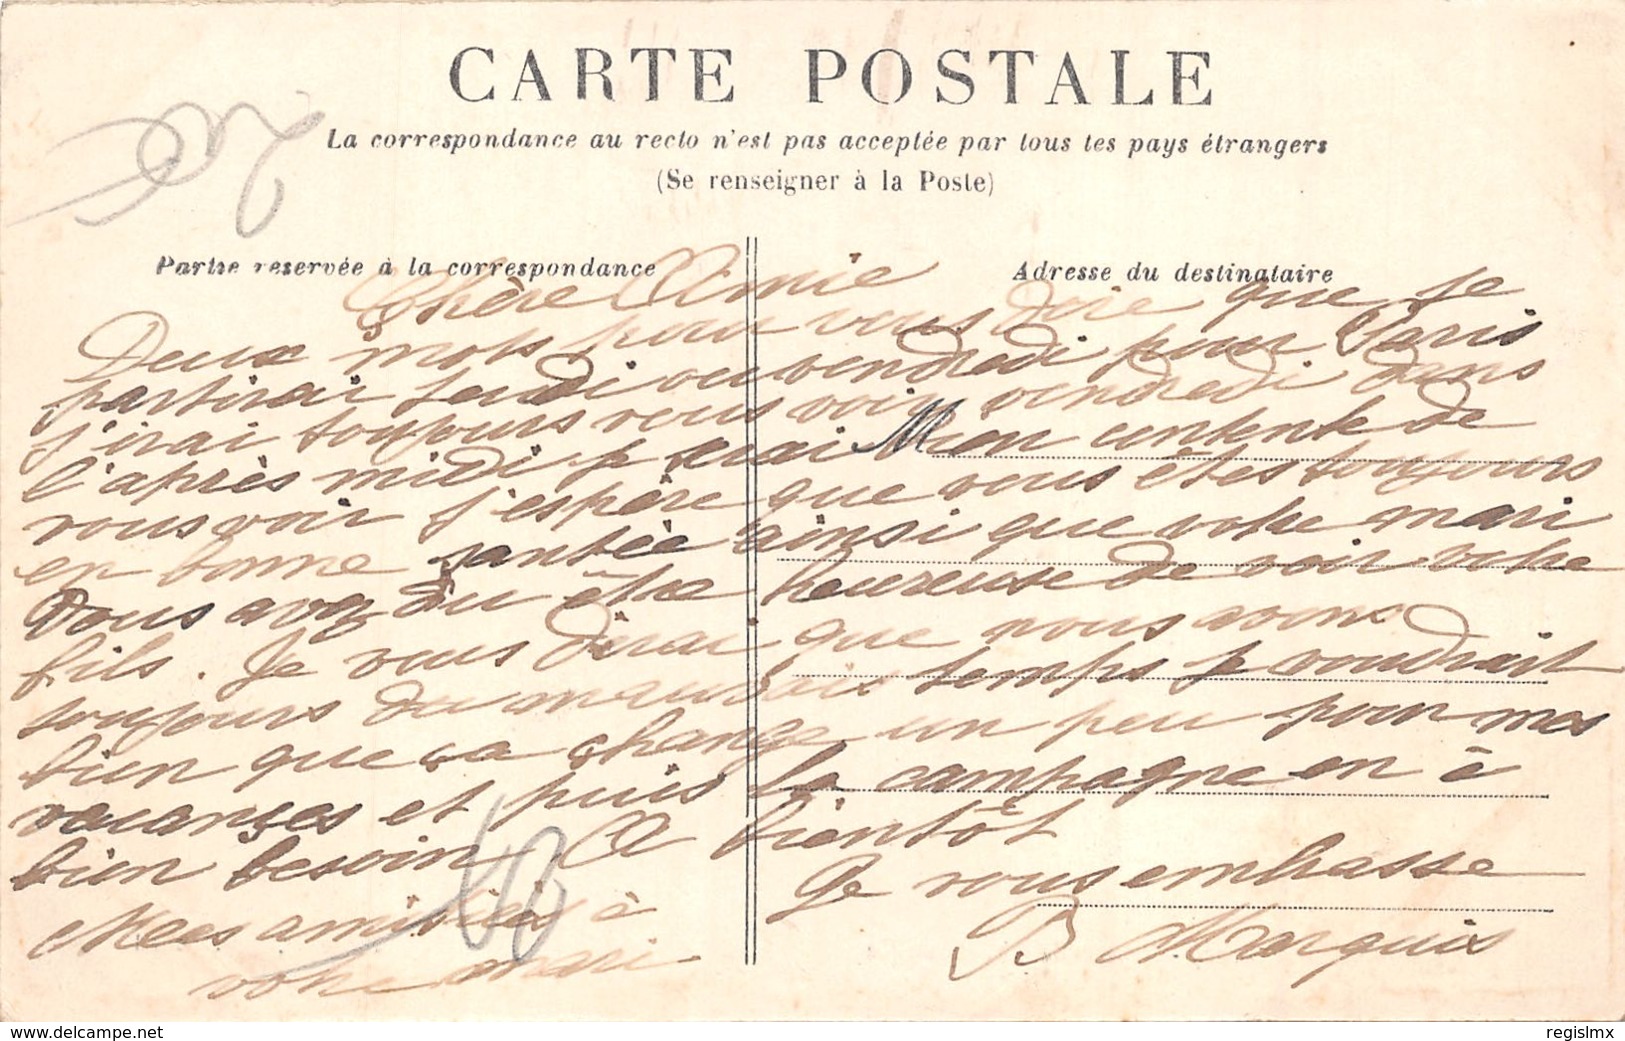 CARTE POSTALE
La correspondance au recto n'est pas acceptée par tous les pays étrangers
(Se renseigner à la Poste)
Partie reservée à la correspondance
Adresse du destinataire
Chère Amie
Deux mots pour vous dire que je
partirai jeudi ou vendredi pour Paris
j'irai toujours vous voir vendredi dans
l'après midi je serai bien contente de
vous voir j'espère que vous êtes toujours
en bonne santée ainsi que votre mari
Vous avez du être heureuse de voir votre
fils. Je vous dirai que nous avons
toujours du mauvais temps je voudrait
bien que ça change un peu pour mes
vacances et puis la campagne en à
bien besoin. A bientôt
Je vous embrasse
B Marquis
Mes amitiés à
votre mari
www.delcampe.net
regislmx